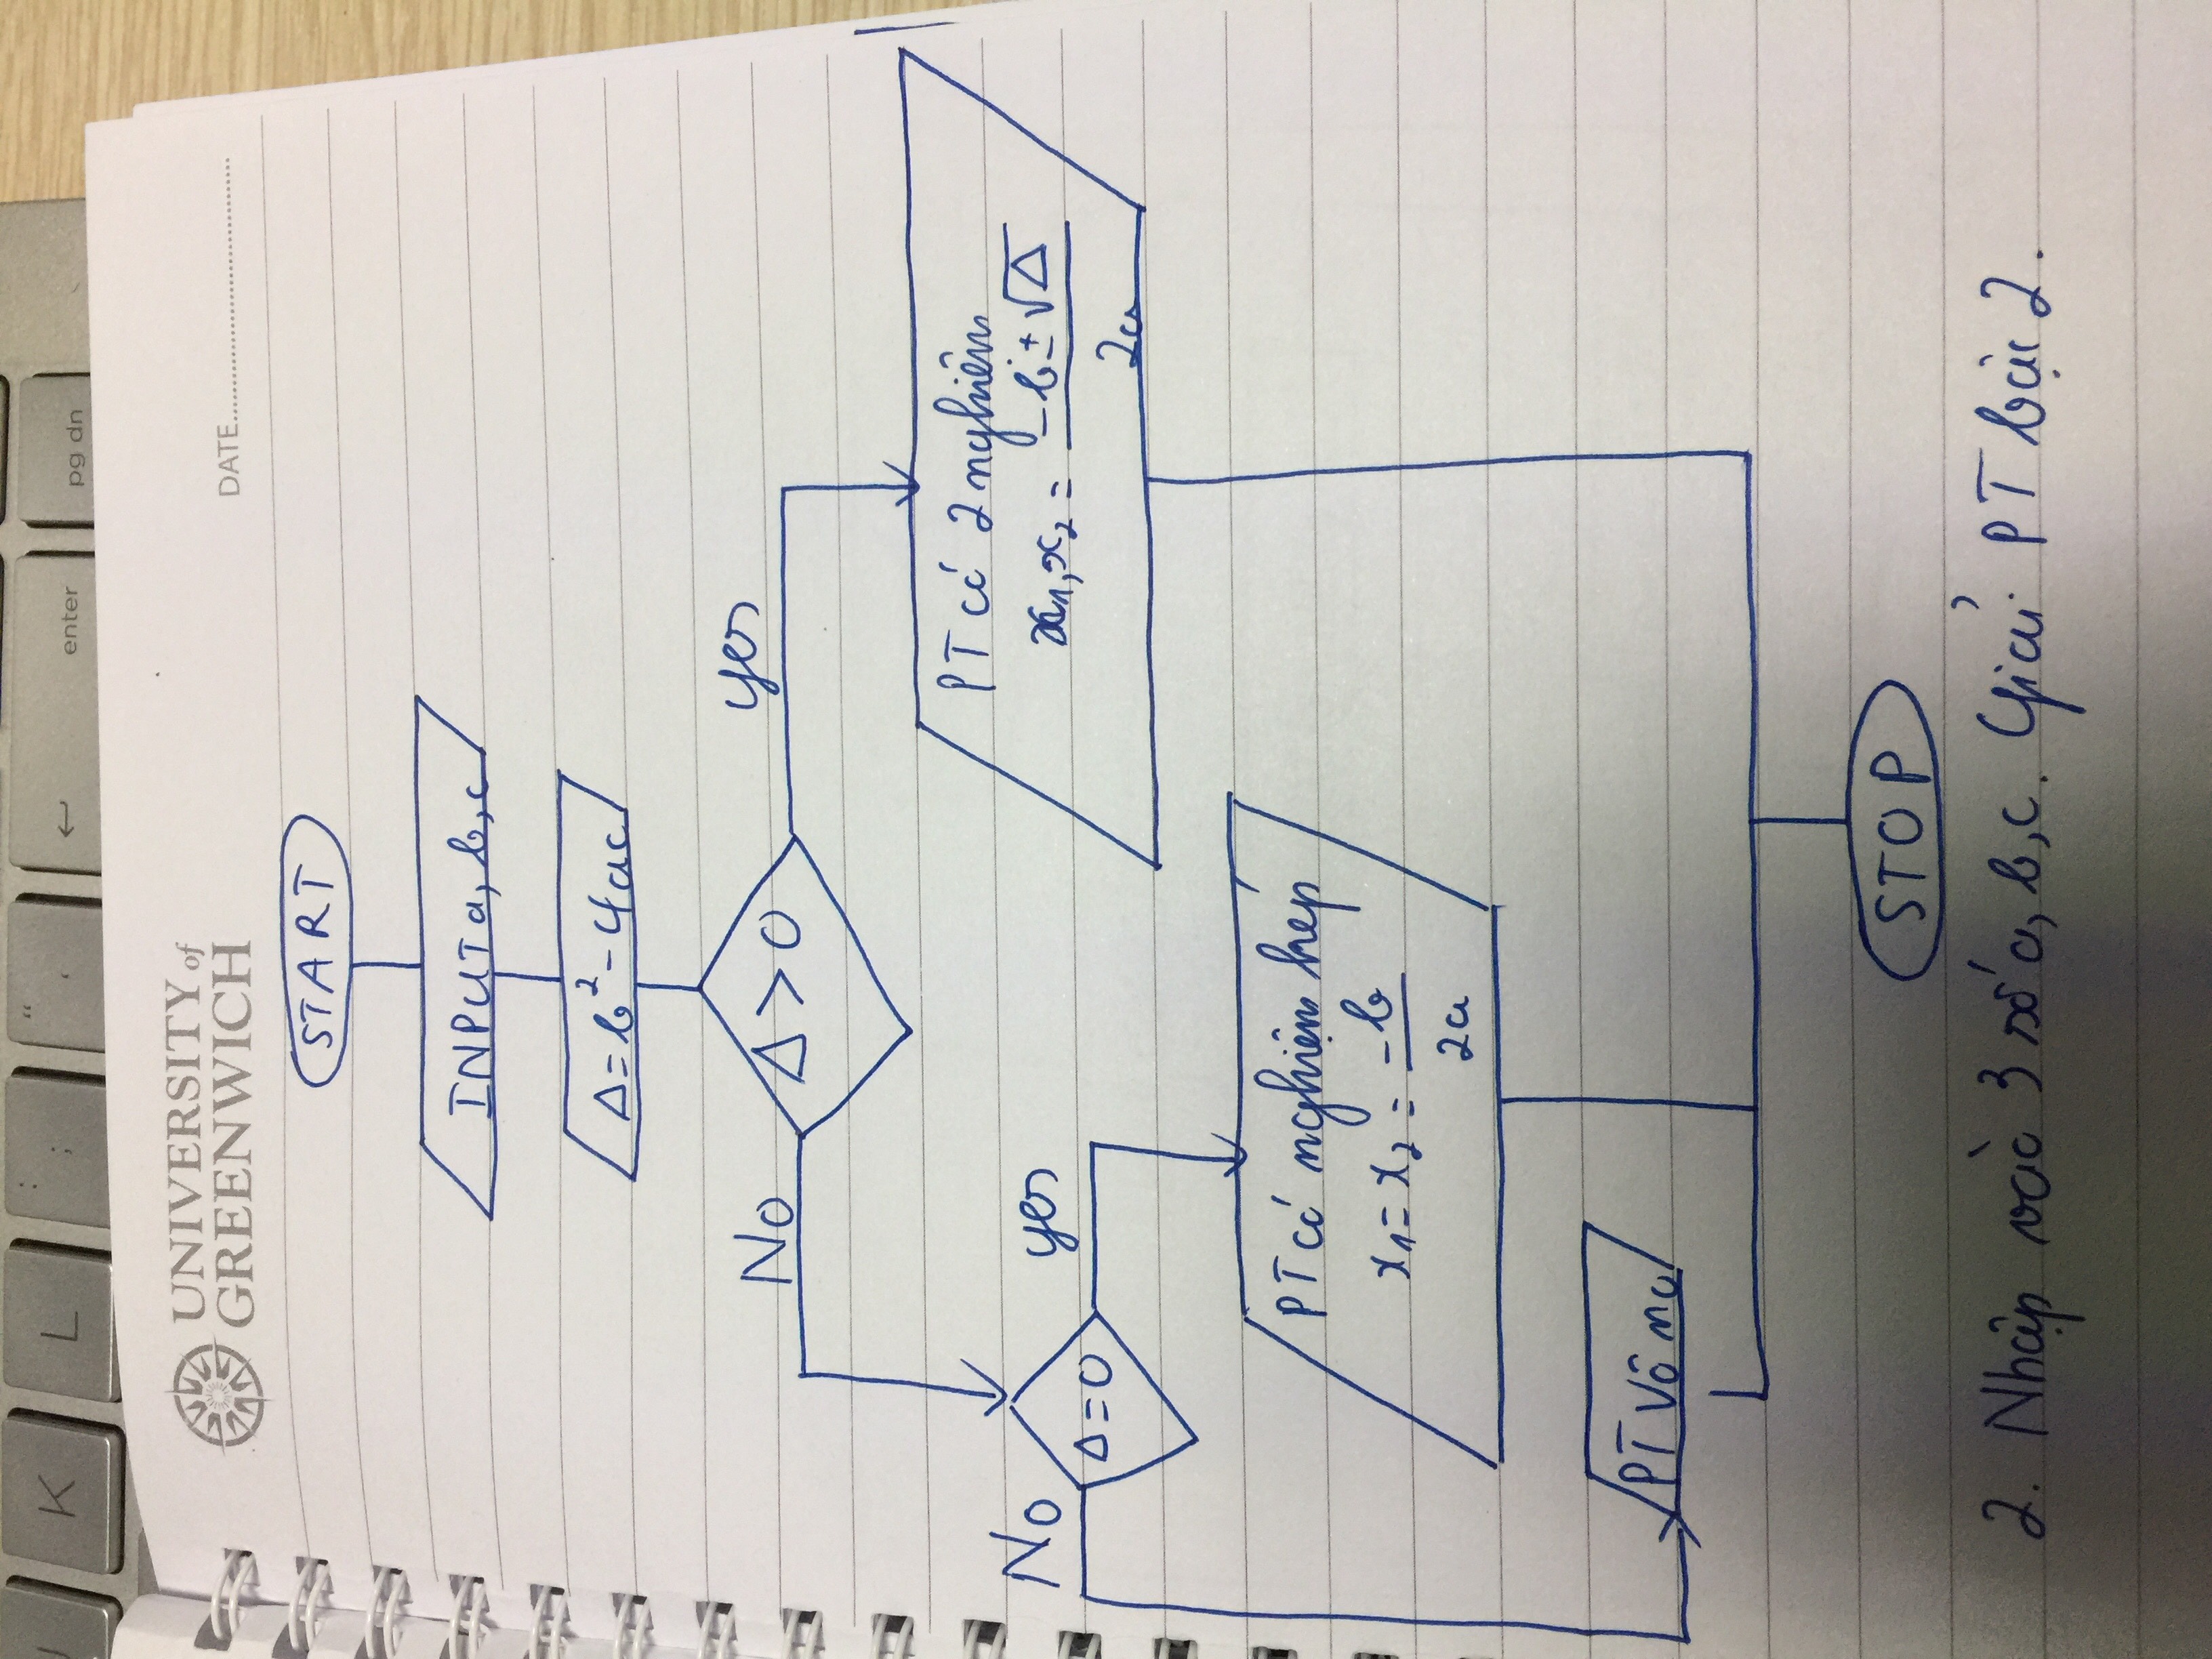 K L : ; " ' enter pg dn
UNIVERSITY of
GREENWICH
DATE
START
INPUT a, b, c
Δ = b² - 4ac
No Δ > 0 yes
PT có 2 nghiệm
x₁, x₂ = -b ± √Δ
2a
No Δ = 0 yes
PT có nghiệm kép
x₁ = x₂ = -b
2a
PT Vô no
STOP
2. Nhập vào 3 số a, b, c. Giải PT bậc 2.